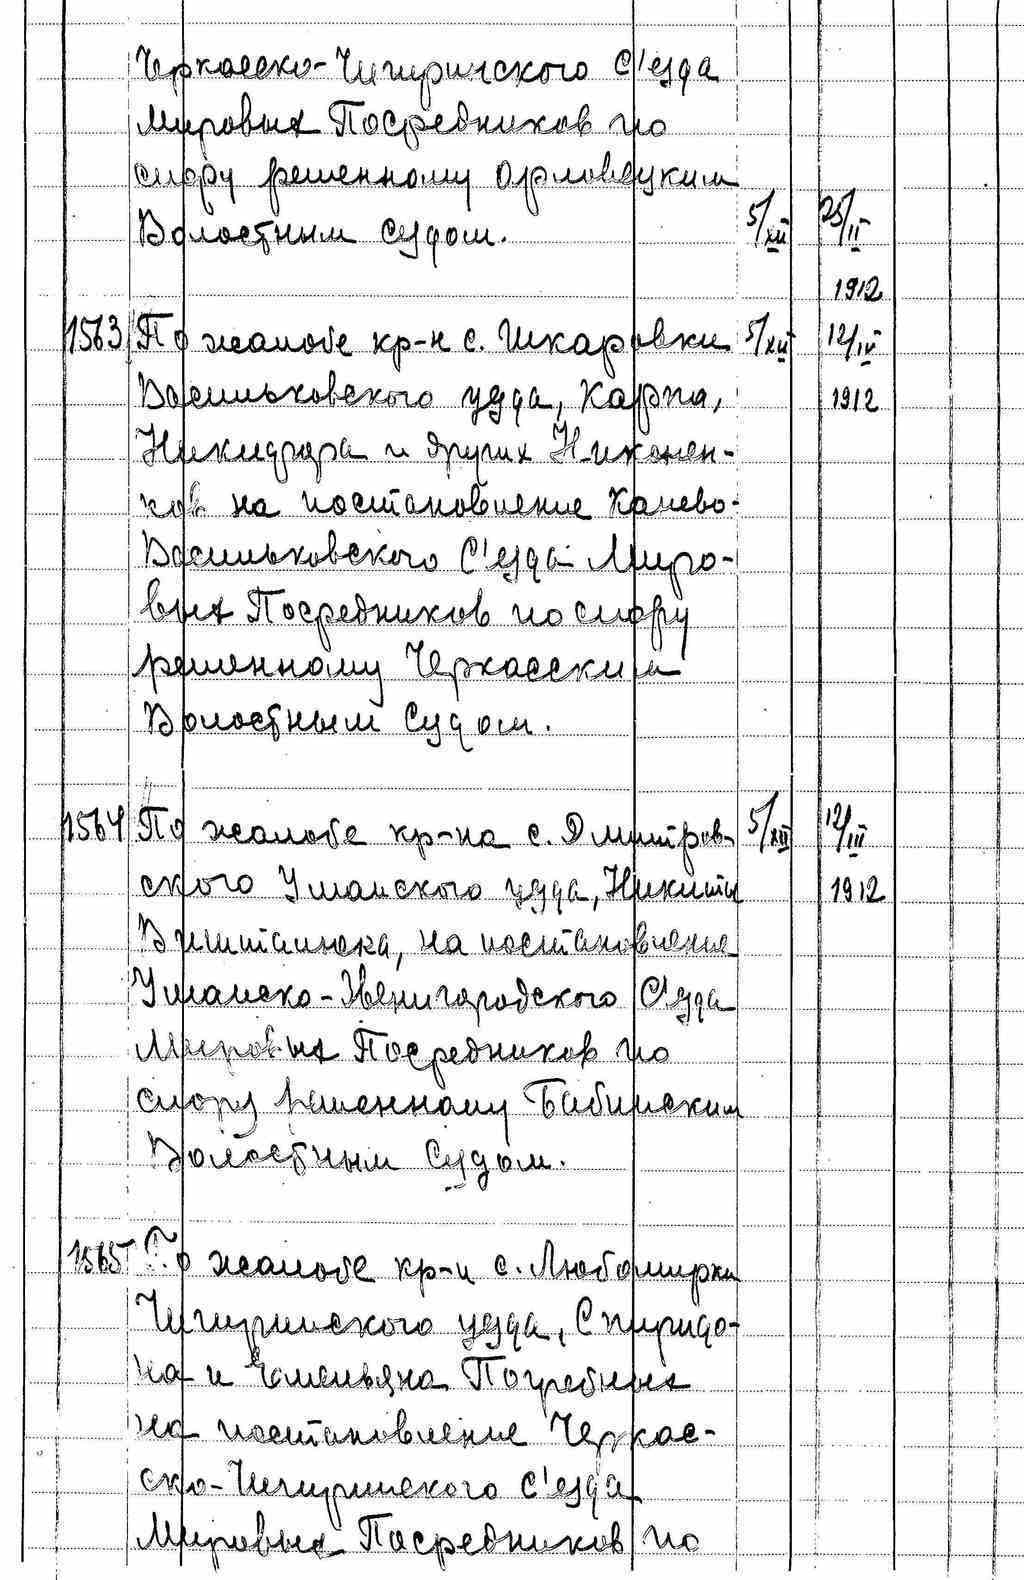 Черкасско-Чигиринского С'езда
Мировых Посредников по
спору решенному Орловецким
Волостным Судом. 5/XII 25/II
1912
1563 По жалобе кр-н с. Шкаровки 5/XII 12/IV
Васильковского уезда, Карпа, 1912
Никифора и других Никонен-
ков на постановление Канево-
Васильковского С'езда Миро-
вых Посредников по спору
решенному Черкасским
Волостным Судом.
1564 По жалобе кр-на с. Дмитров- 5/XII 12/III
ского Уманского уезда, Никиты 1912
на постановление
Уманско-Звенигородского С'езда
Мировых Посредников по
спору решенному Бабинским
Волостным Судом.
1565 По жалобе кр-н с. Любомирки
Чигиринского уезда, Спиридо-
на и Емельяна Погребных
на постановление Черкас-
ско-Чигиринского С'езда
Мировых Посредников по